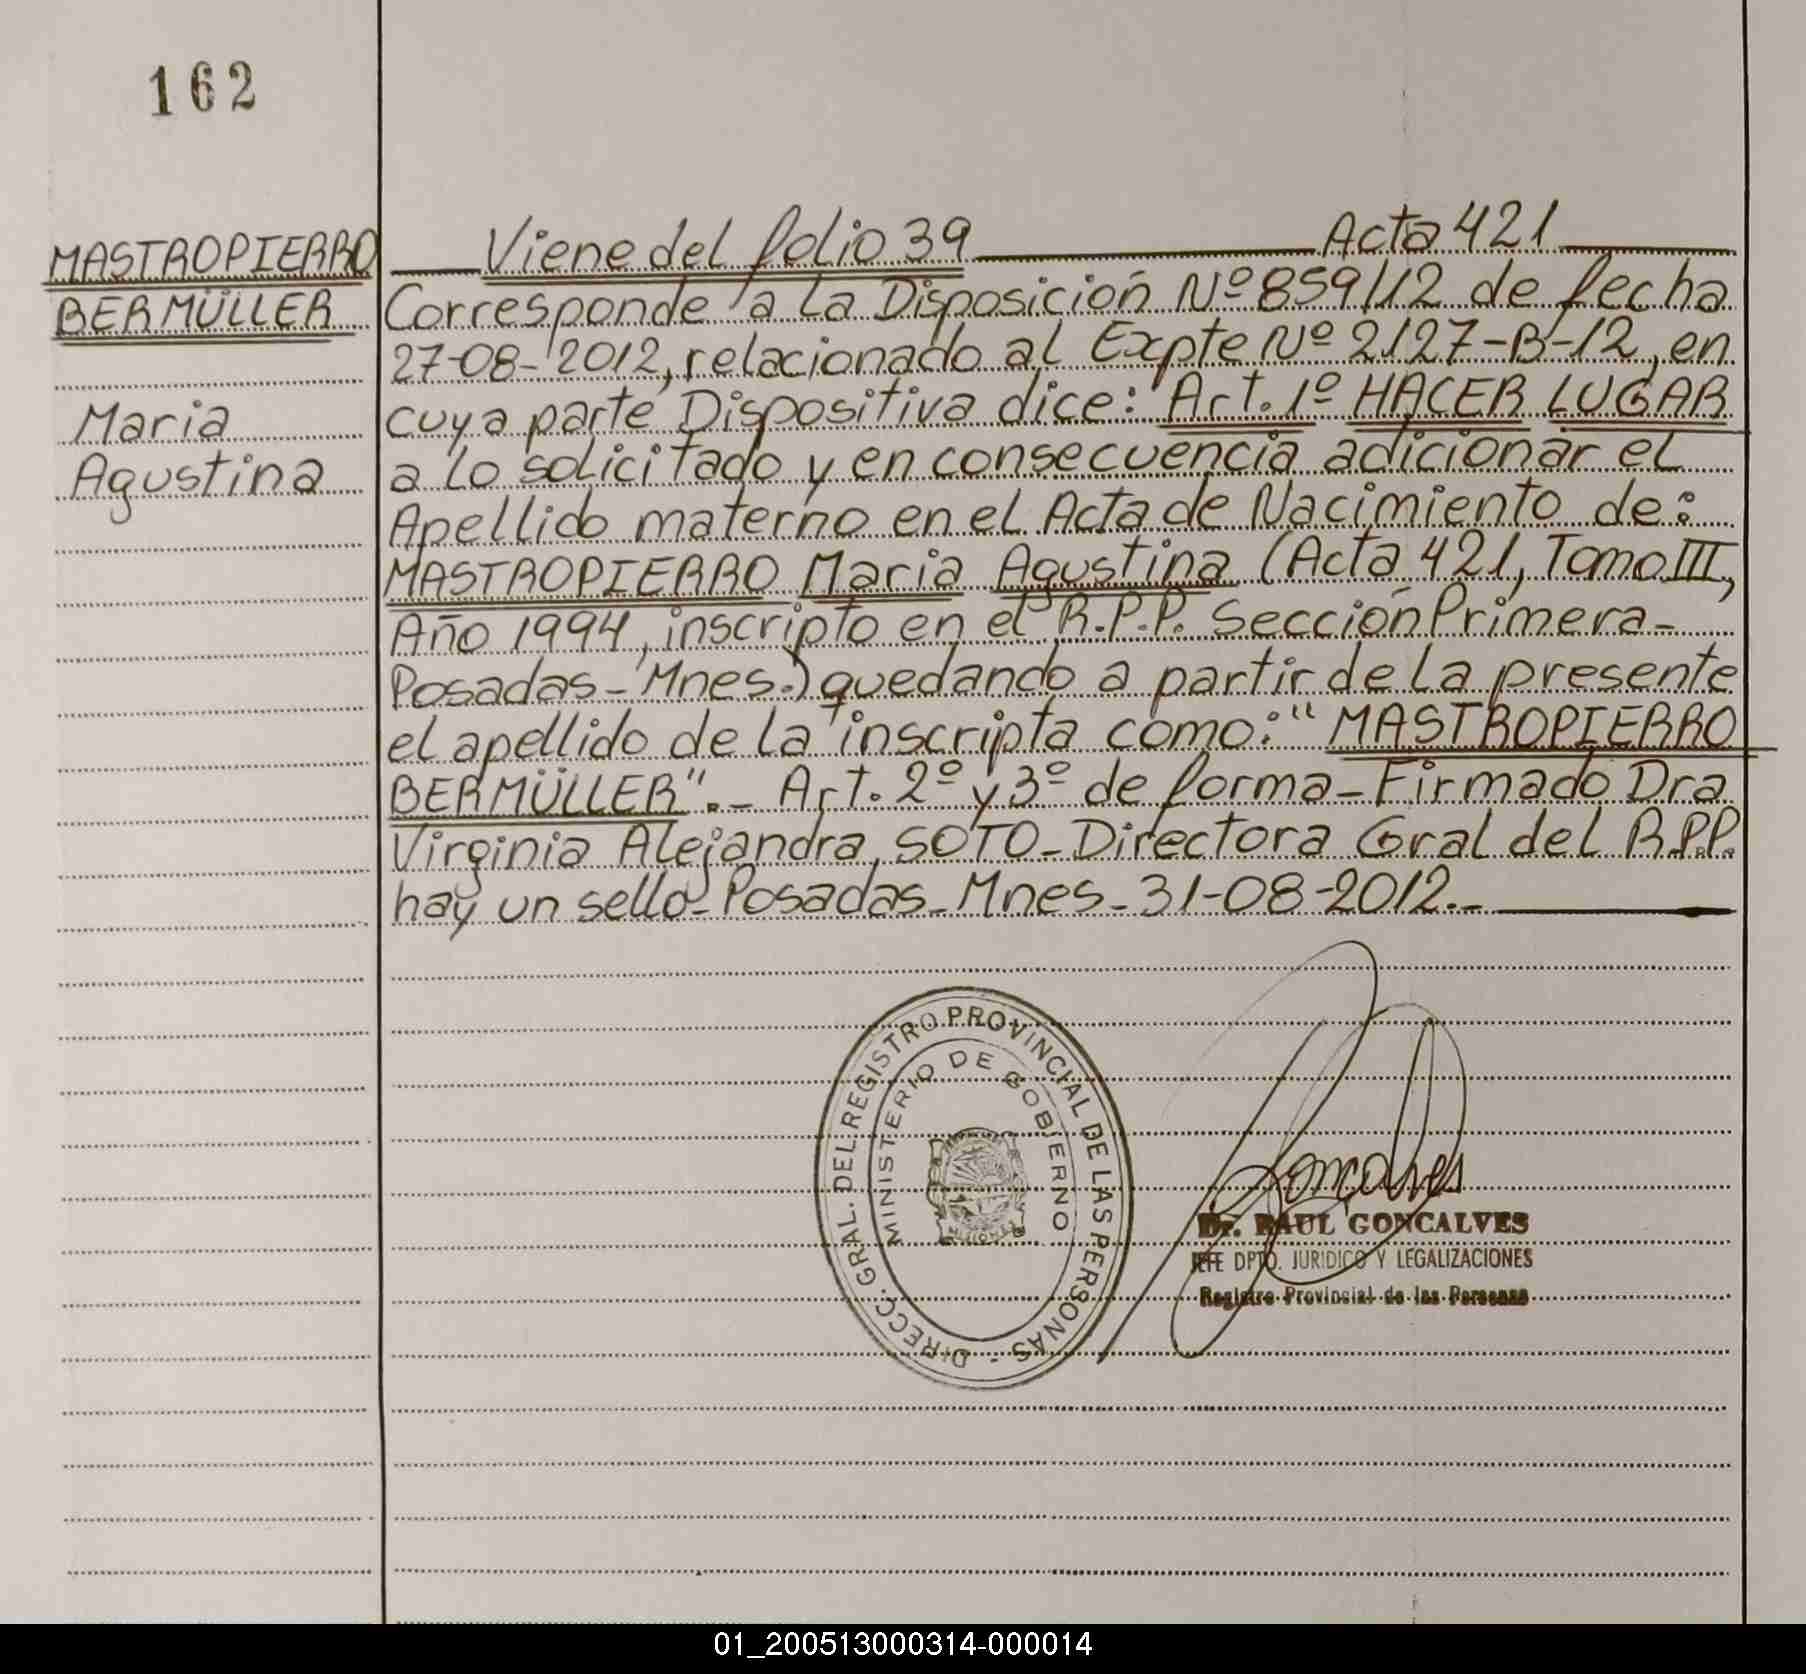 162
MASTROPIERRO
BERMÜLLER
Maria
Agustina
Viene del folio 39 Acta 421
Corresponde a la Disposición Nº 859/12 de fecha
27-08-2012, relacionado al Expte Nº 2127-B-12, en
cuya parte Dispositiva dice: Art. 1º HACER LUGAR
a lo solicitado y en consecuencia adicionar el
Apellido materno en el Acta de Nacimiento de:
MASTROPIERRO Maria Agustina (Acta 421, Tomo III,
Año 1994, inscripto en el R.P.P. Sección Primera-
Posadas-Mnes.) quedando a partir de la presente
el apellido de la inscripta como: "MASTROPIERRO
BERMÜLLER".- Art. 2º y 3º de forma-Firmado Dra
Virginia Alejandra SOTO-Directora Gral del R.P.P.
hay un sello-Posadas-Mnes-31-08-2012.-
DIRECC. GRAL. DEL REGISTRO PROVINCIAL DE LAS PERSONAS -
MINISTERIO DE GOBIERNO
MISIONES
Goncalves
Dr. RAUL GONCALVES
JEFE DPTO. JURIDICO Y LEGALIZACIONES
Registro Provincial de las Personas
01_200513000314-000014